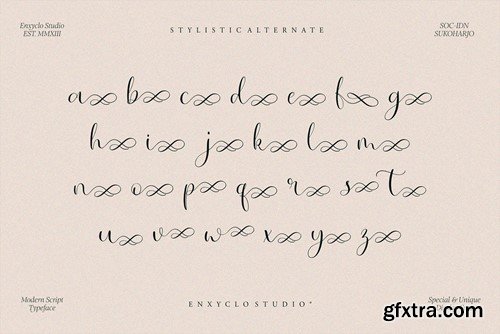 Enxyclo Studio
EST. MMXIII
STYLISTIC ALTERNATE
SOC-IDN
SUKOHARJO
a b c d e f g
h i j k l m
n o p q r s t
u v w x y z
Modern Script
Typeface
ENXYCLO STUDIO
Special & Unique
gfxtra.com